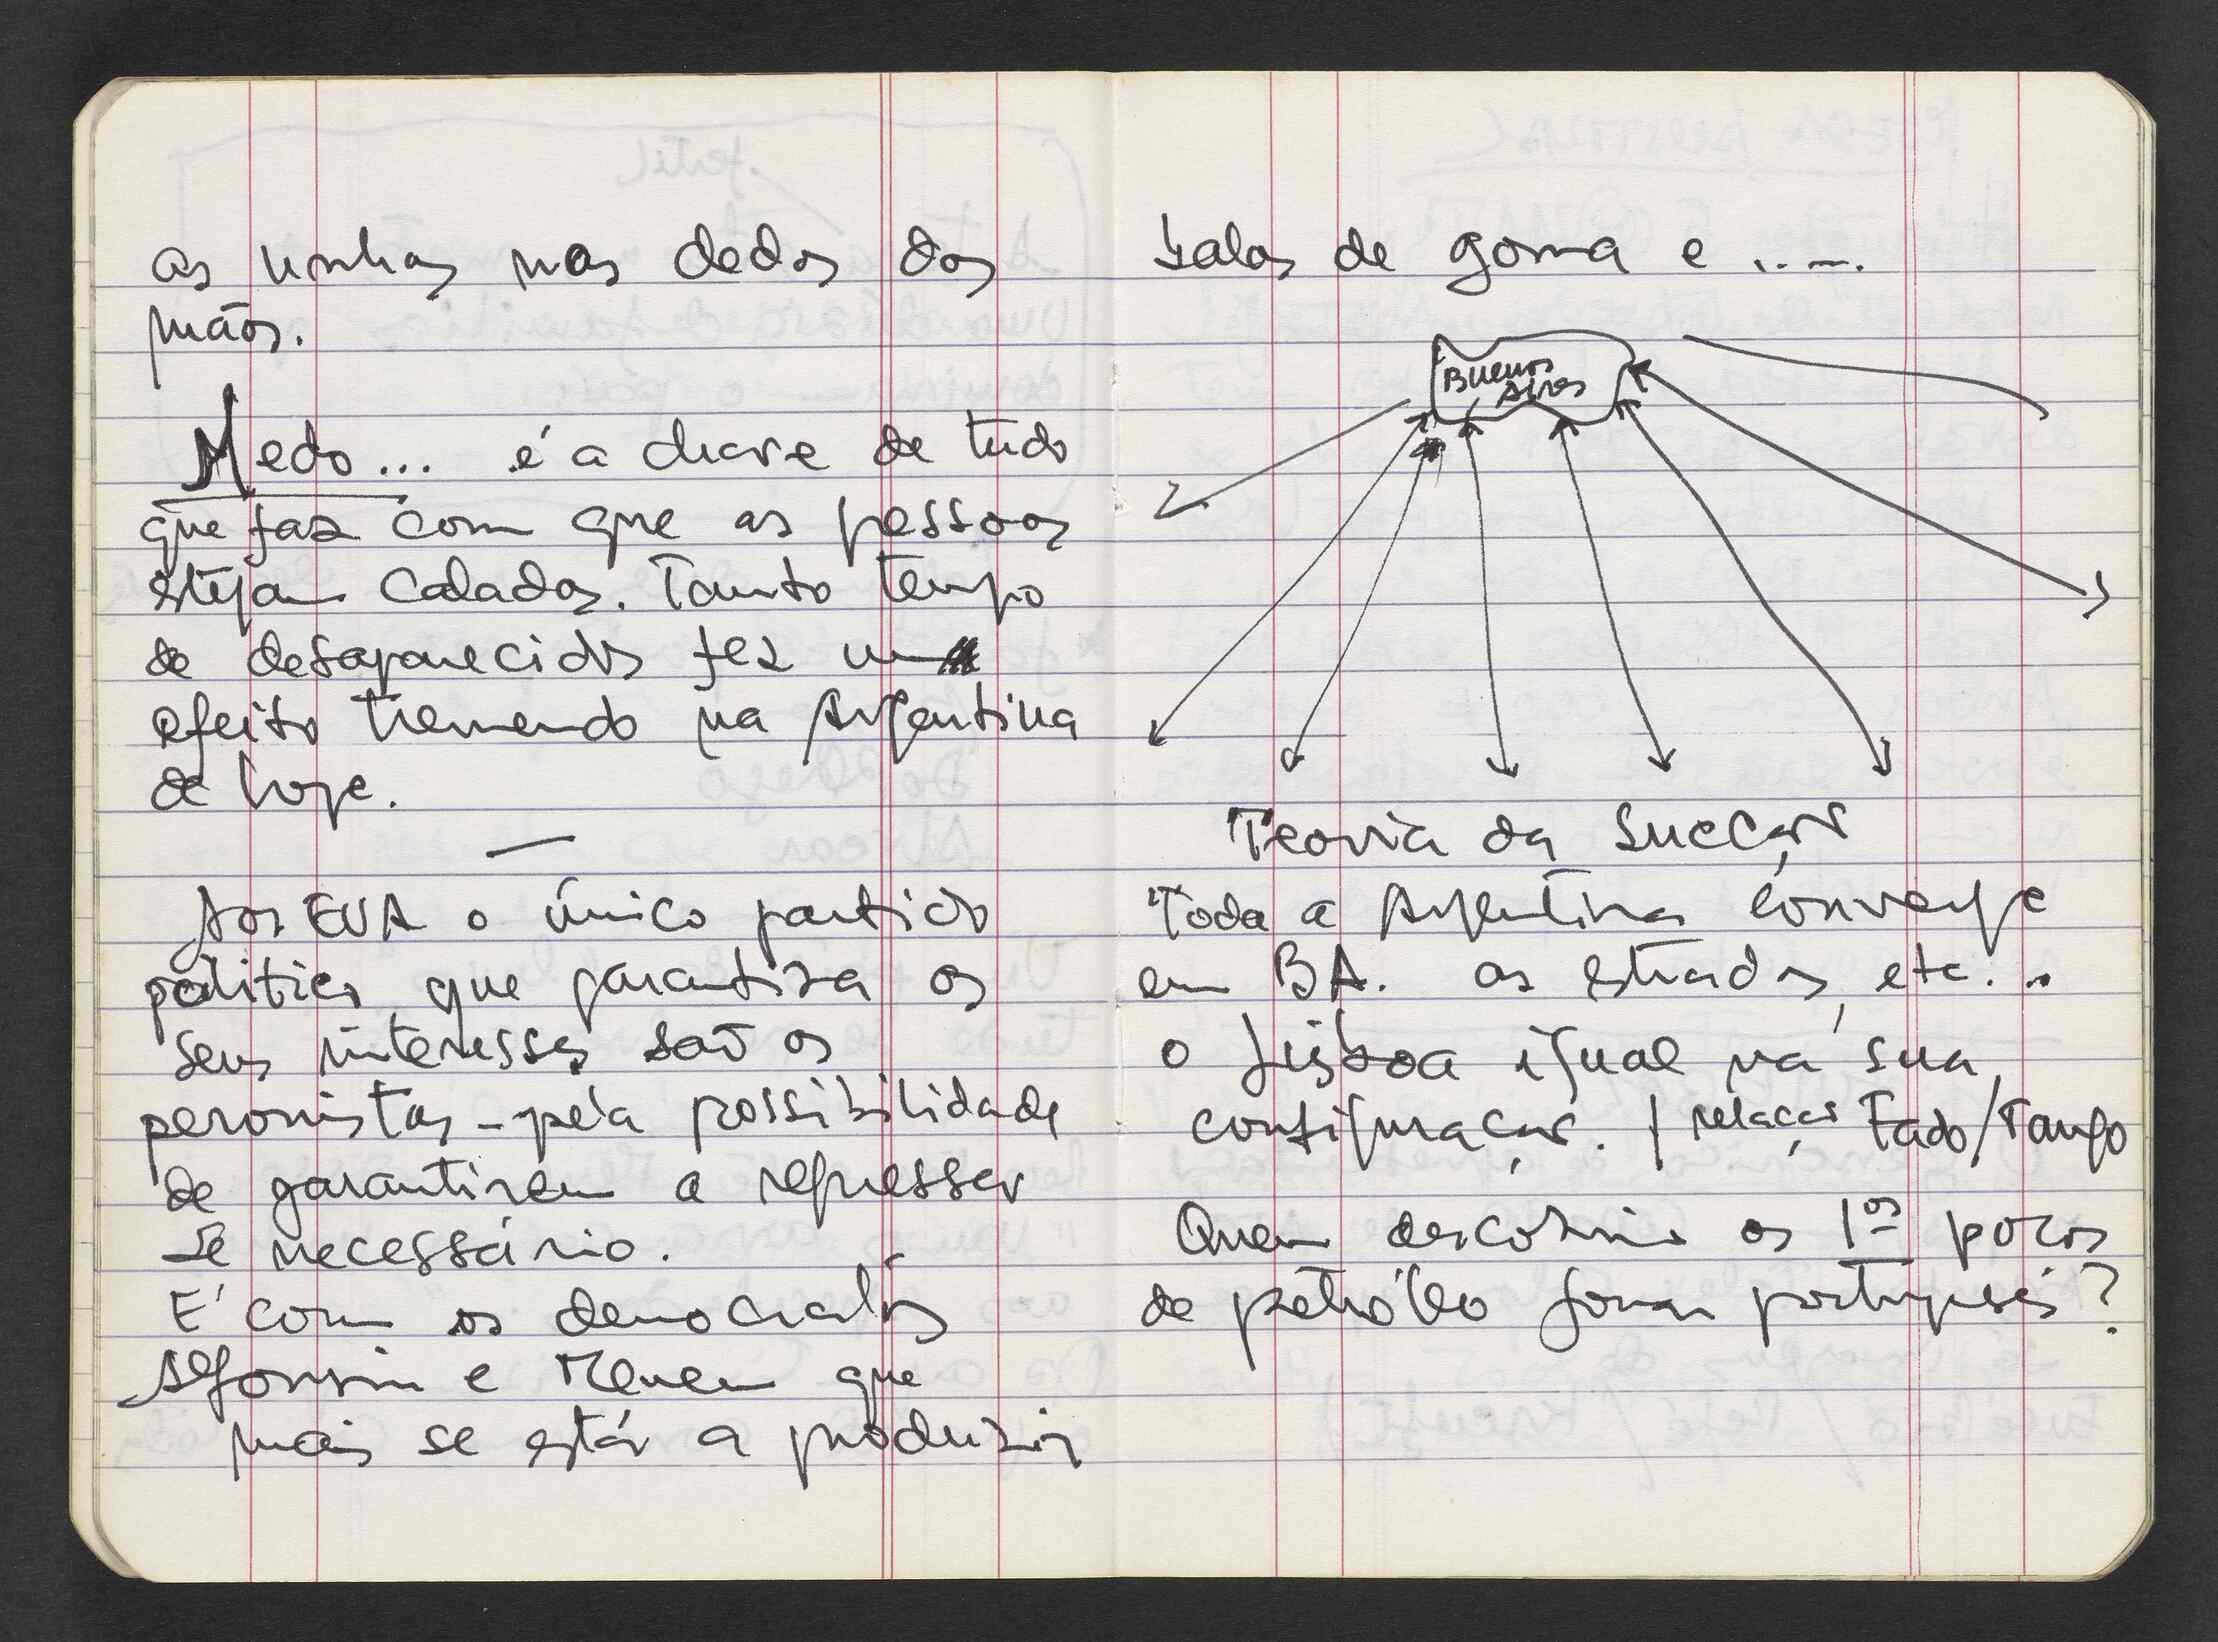 as unhas nos dedos das
mãos.
Medo... é a chave de tudo
que faz com que as pessoas
estejam caladas. Tanto tempo
de desaparecidos fez um
efeito tremendo na Argentina
de hoje.
—
Aos EUA o único partido
político que garantiza os
seus interesses são os
peronistas - pela possibilidade
de garantirem a repressão
se necessário.
E' com os democratas
Alfonsin e Menem que
mais se está a produzir
balas de goma e .....
Buenos
Aires
Teoria da sucção
Toda a Argentina converge
em BA. as estradas, etc...
o Lisboa igual na sua
configuração. / relação Fado/Tango
Quem descobriu os 1os poços
de petróleo foram portugueses?